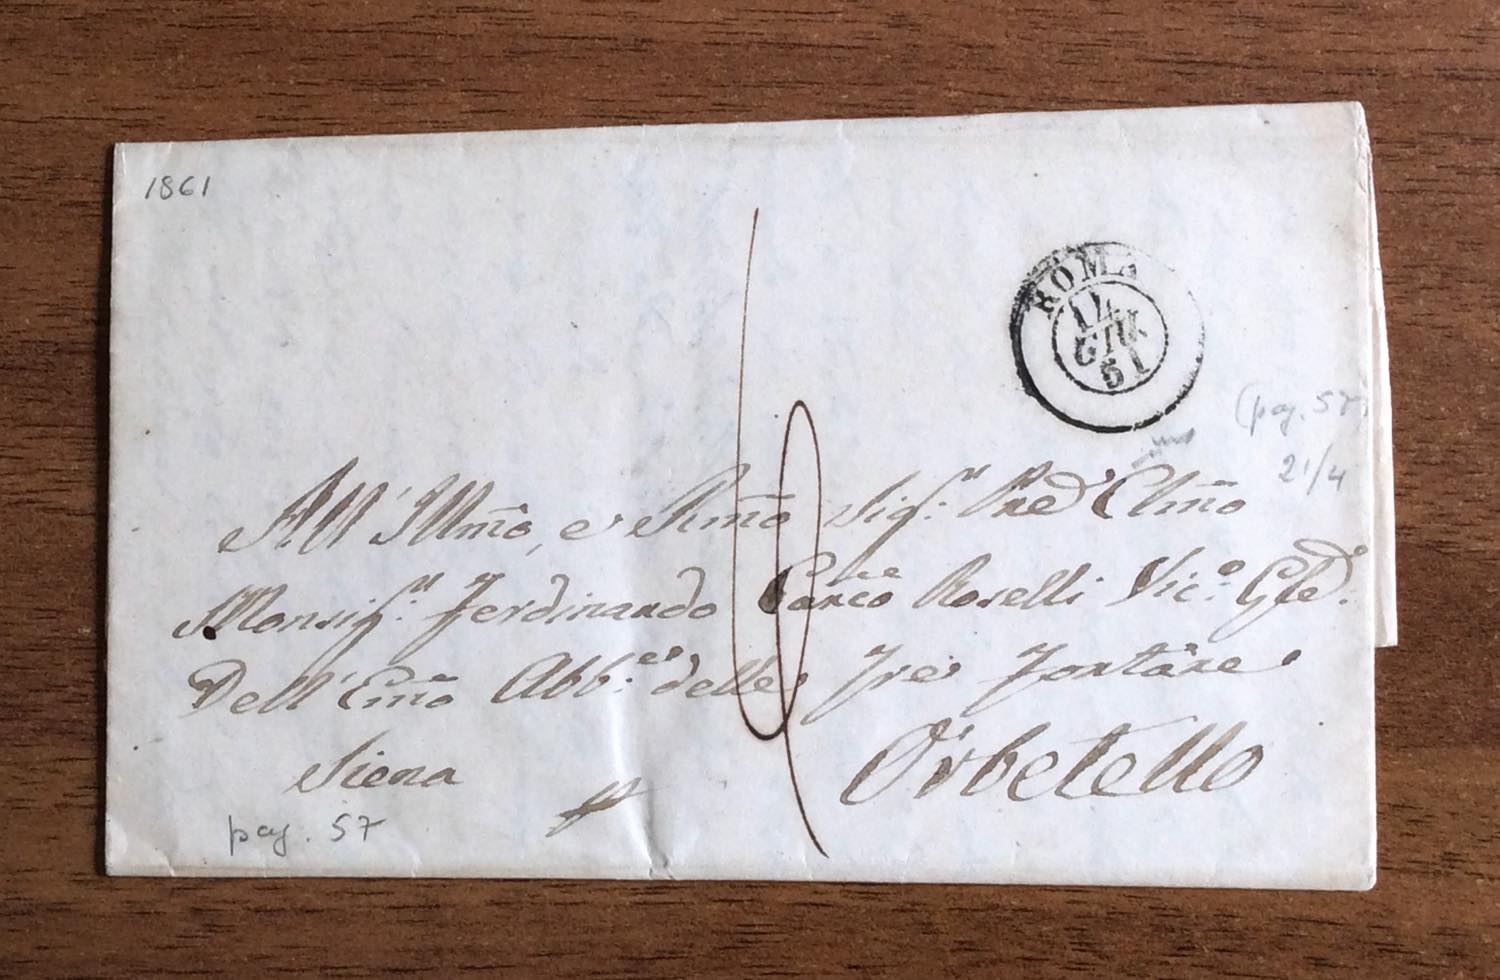 1861
ROMA
14
GIU
51
(pag. 57)
21/4
All' Illmo, e Rmo Sigr. Pne Clmo
Monsigr. Ferdinando Canco Roselli Vico. Gle
Dell' Emo Abb. delle Tre Fontane
Siena
Orbetello
pag. 57